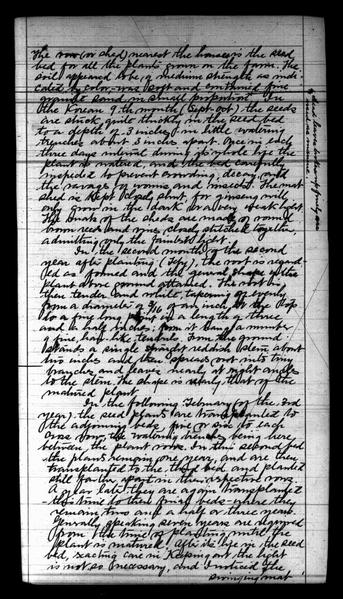 The row (or shed) nearest the house is the seed
bed for all the plants grown on the farm. The
soil appeared to be of medium strength as indi-
cated by color, was soft and contained fine
granite sand in small proportion. In
the Korean 9th month (Sept-Oct) the seeds
are stuck quite thickly in the seed bed
to a depth of 3 inches, in little watering
trenches about 3 inches apart. Once in each
three days interval during its whole life the
plant is watered, and the bed carefully
inspected to prevent crowding, decay, and
the ravages by worms and insects. The mat
shed is kept closely shut, for ginseng will
only grow in the dark or a very weak light
The backs of the sheds are made of round
brown reeds and vine, closely stitched together,
admitting only the faintest light.
In the second month of the second
year after planting (Feby) the root is regard-
ed as formed and the general shape of the
plant above ground attained. The root is
then tender and white, tapering evenly
from a diameter of 3/16 of an inch at the top
to a fine long point at a length of three
and a half inches; from it hang a number
of fine, hair like tendrils. From the ground
stands a single straight reddish stem about
two inches and then spreads out into tiny
branches and leaves nearly at right angles
to the stem. The shape is nearly that of the
matured plant.
In the following February (of the 3rd
year) the seed plants are transplanted to
the adjoining beds, five or six to each
cross row, the watering trenches being here
between the plant rows. In this second bed
the plants remain one year, and are then
transplanted to the third bed and planted
still farther apart in their respective rows.
A year later they are again transplanted
this time to their final beds where they
remain two and a half or three years.
Generally speaking seven years are required
from the time of planting until the
plant is matured. After its life in the seed
bed, exacting care in keeping out the light
is not so necessary, and I noticed the
swinging mat